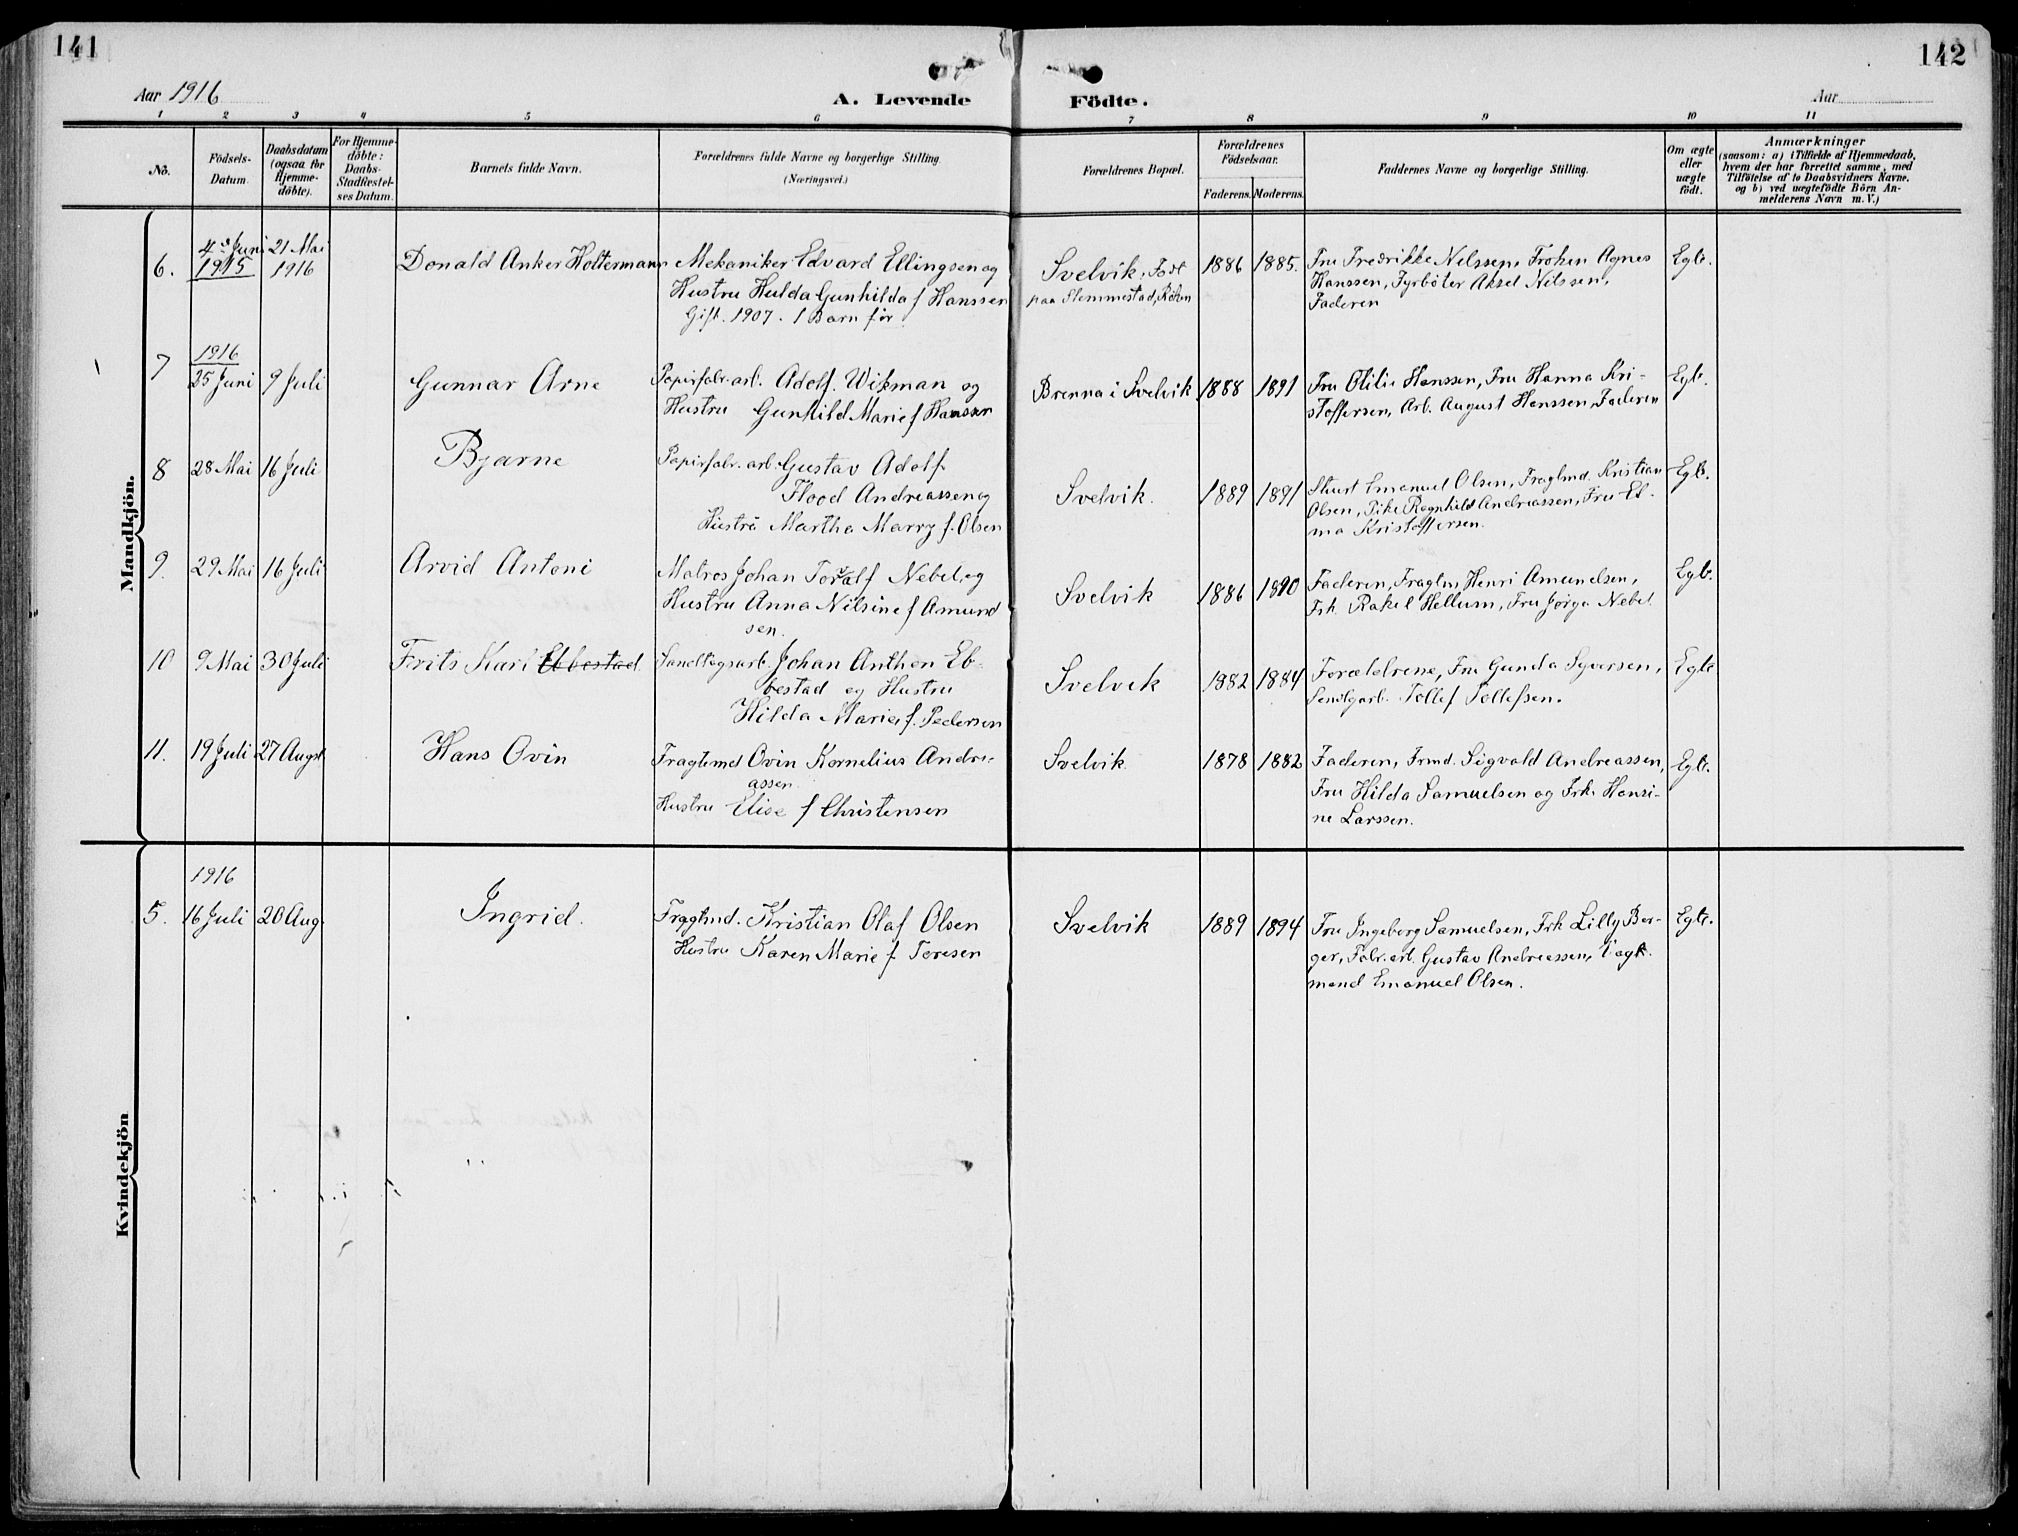 141
142
Aar 1916
A. Levende
Födte.
Aar
1 2 3 4 5 6 7 8 9 10 11
No.
Födsels-
Datum.
Daabsdatum
(ogsaa for
Hjemme-
döbte).
For Hjemme-
döbte:
Daabs-
Stadfestel-
ses Datum.
Barnets fulde Navn.
Forældrenes fulde Navne og borgerlige Stilling.
(Næringsvei.)
Forældrenes Bopæl.
Forældrenes
Födselsaar.
Faderens. Moderens.
Faddernes Navne og borgerlige Stilling.
Om ægte
eller
uægte
födt.
Anmærkninger
(saasom: a) i Tilfælde af Hjemmedaab,
hvem der har forrettet samme, med
Tilföielse af to Daabsvidners Navne,
og b) ved uægtefödte Börn An-
melderens Navn m. V.)
Mandkjön.
6.
4de Juni
1915
21 Mai
1916
Donald Anker Holtermann
Mekaniker Edvard Ellingsen og
Hustru Hulda Gunhilda f Hanssen
Gift. 1907. 1 Barn før
Svelvik. Født
paa Slemmestad, Røken
1886
1885.
Fru Fredrikke Nilssen, Frøken Agnes
Hanssen, Fyrbøter Aksel Nilssen,
Faderen
Egte.
7
1916
25 Juni
9 Juli
Gunnar Arne
Papirfabr.arb. Adolf Wikman og
Hustru Gunhild Marie f Hanssen
Brenna i Svelvik
1888
1891
Fru Otilie Hanssen, Fru Hanna Kri-
stoffersen, Arb. August Hanssen, Faderen
Egte.
8
28 Mai
16 Juli
Bjarne
Papirfabr.arb. Gustav Adolf
Flood Andreassen og
Hustru Martha Marry f. Olsen
Svelvik.
1889
1891
Emanuel Olsen, Fragtmd. Kristian
Olsen, Pike Ragnhild Andreassen, Fru El-
ma Kristoffersen.
Egte.
9.
29 Mai
16 Juli
Arvid Antoni
Matros Johan Toralf Nebel og
Hustru Anna Nilsine f Amund
sen.
Svelvik
1886
1890
Faderen, Fragtm. Henri Amundsen,
Frk. Rakel Hellum, Fru Jørga Nebel.
Egte.
10
9 Mai
30 Juli
Frits Karl Ebbestad.
Sandtagsarb. Johan Anthon Eb-
bestad og Hustru
Hilda Marie f. Pedersen
Svelvik
1882
1884
Forældrene, Fru Gunda Syversen,
Sandtgarb. Tollef Tollefsen.
Egte
11.
19 Juli
27 Augst
Hans Ovin
Fragtmd Ovin Kornelius Andre-
assen.
Hustru Elise f Christensen
Svelvik
1878
1882
Faderen, Frmd. Sigvald Andreassen,
Fru Hilda Samuelsen og Frk. Hansi-
ne Larssen.
Egte.
Kvindekjön
5.
1916
16 Juli
20 Aug.
Ingrid.
Fragtmd. Kristian Olaf Olsen
Hustru Karen Marie f Toresen
Svelvik
1889
1894
Fru Ingeborg Samuelsen, Frk Lilly Ber-
ger, Fabr.arb. Gustav Andreassen, Vagt-
mand Emanuel Olsen.
Egte.